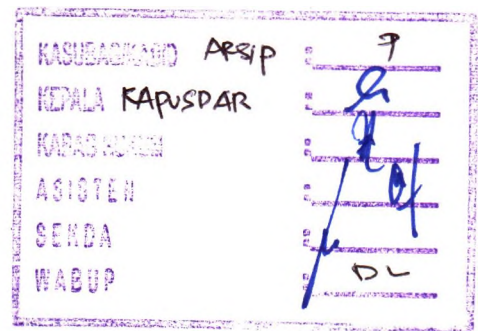 KASUBAG/KASID ARSIP :
KEPALA KAPUSDAR :
KABAG HUKUM :
ASISTEN :
SEKDA :
WABUP : DL